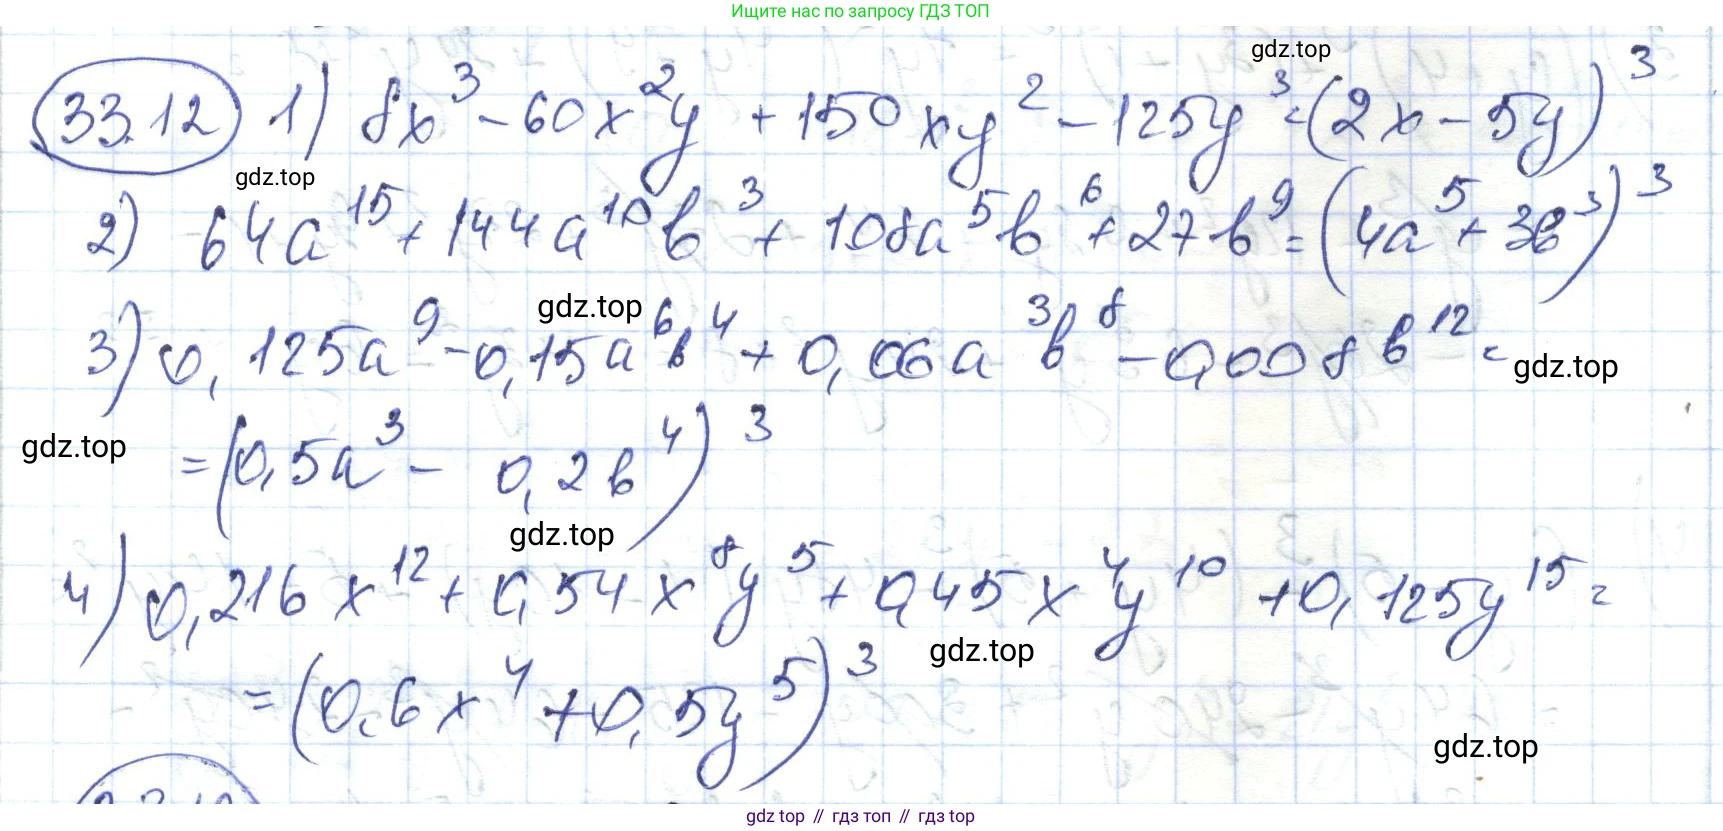 Ищите нас по запросу ГДЗ ТОП
gdz.top
33.12 1) 8x³ - 60x²y + 150xy² - 125y³ = (2x - 5y)³
gdz.top
2) 64a¹⁵ + 144a¹⁰b³ + 108a⁵b⁶ + 27b⁹ = (4a⁵ + 3b³)³
gdz.top
3) 0,125a⁹ - 0,15a⁶b⁴ + 0,06a³b⁸ - 0,008b¹² =
gdz.top
gdz.top
= (0,5a³ - 0,2b⁴)³
gdz.top
4) 0,216x¹² + 0,54x⁸y⁵ + 0,45x⁴y¹⁰ + 0,125y¹⁵ =
gdz.top
= (0,6x⁴ + 0,5y⁵)³
gdz.top
gdz top // гдз топ // gdz top